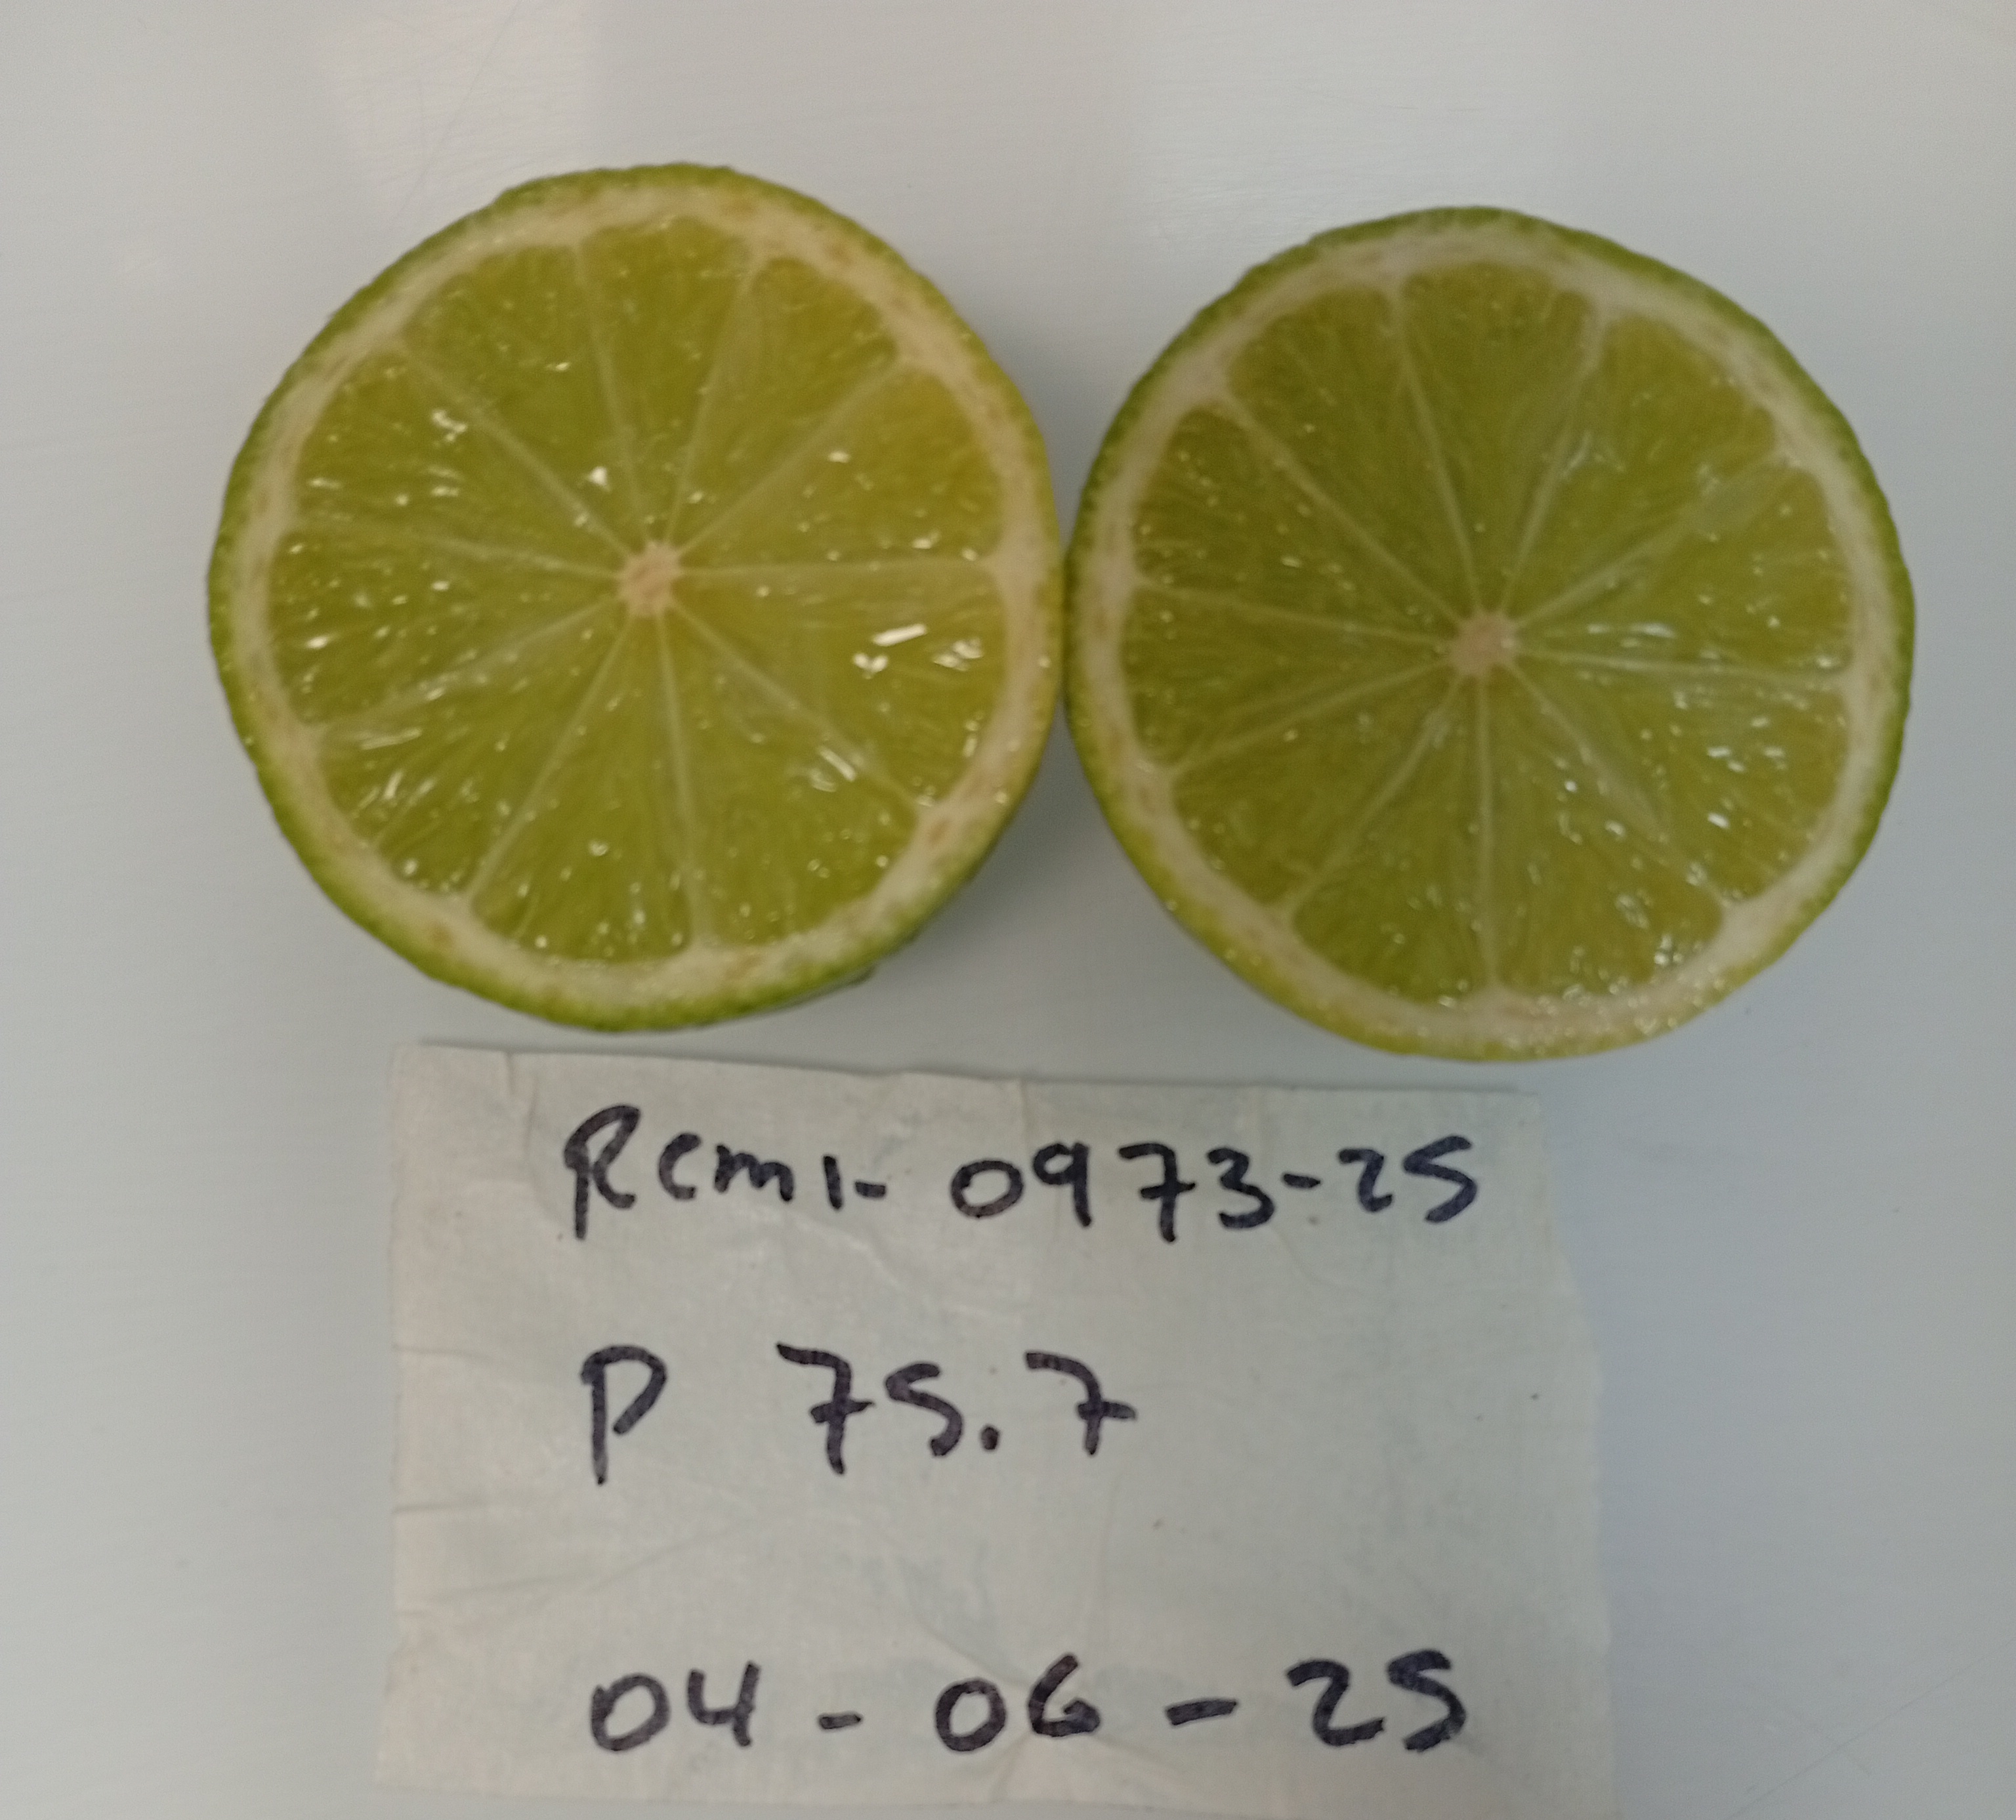 Rcm1-0973-25
P 75.7
04-06-25